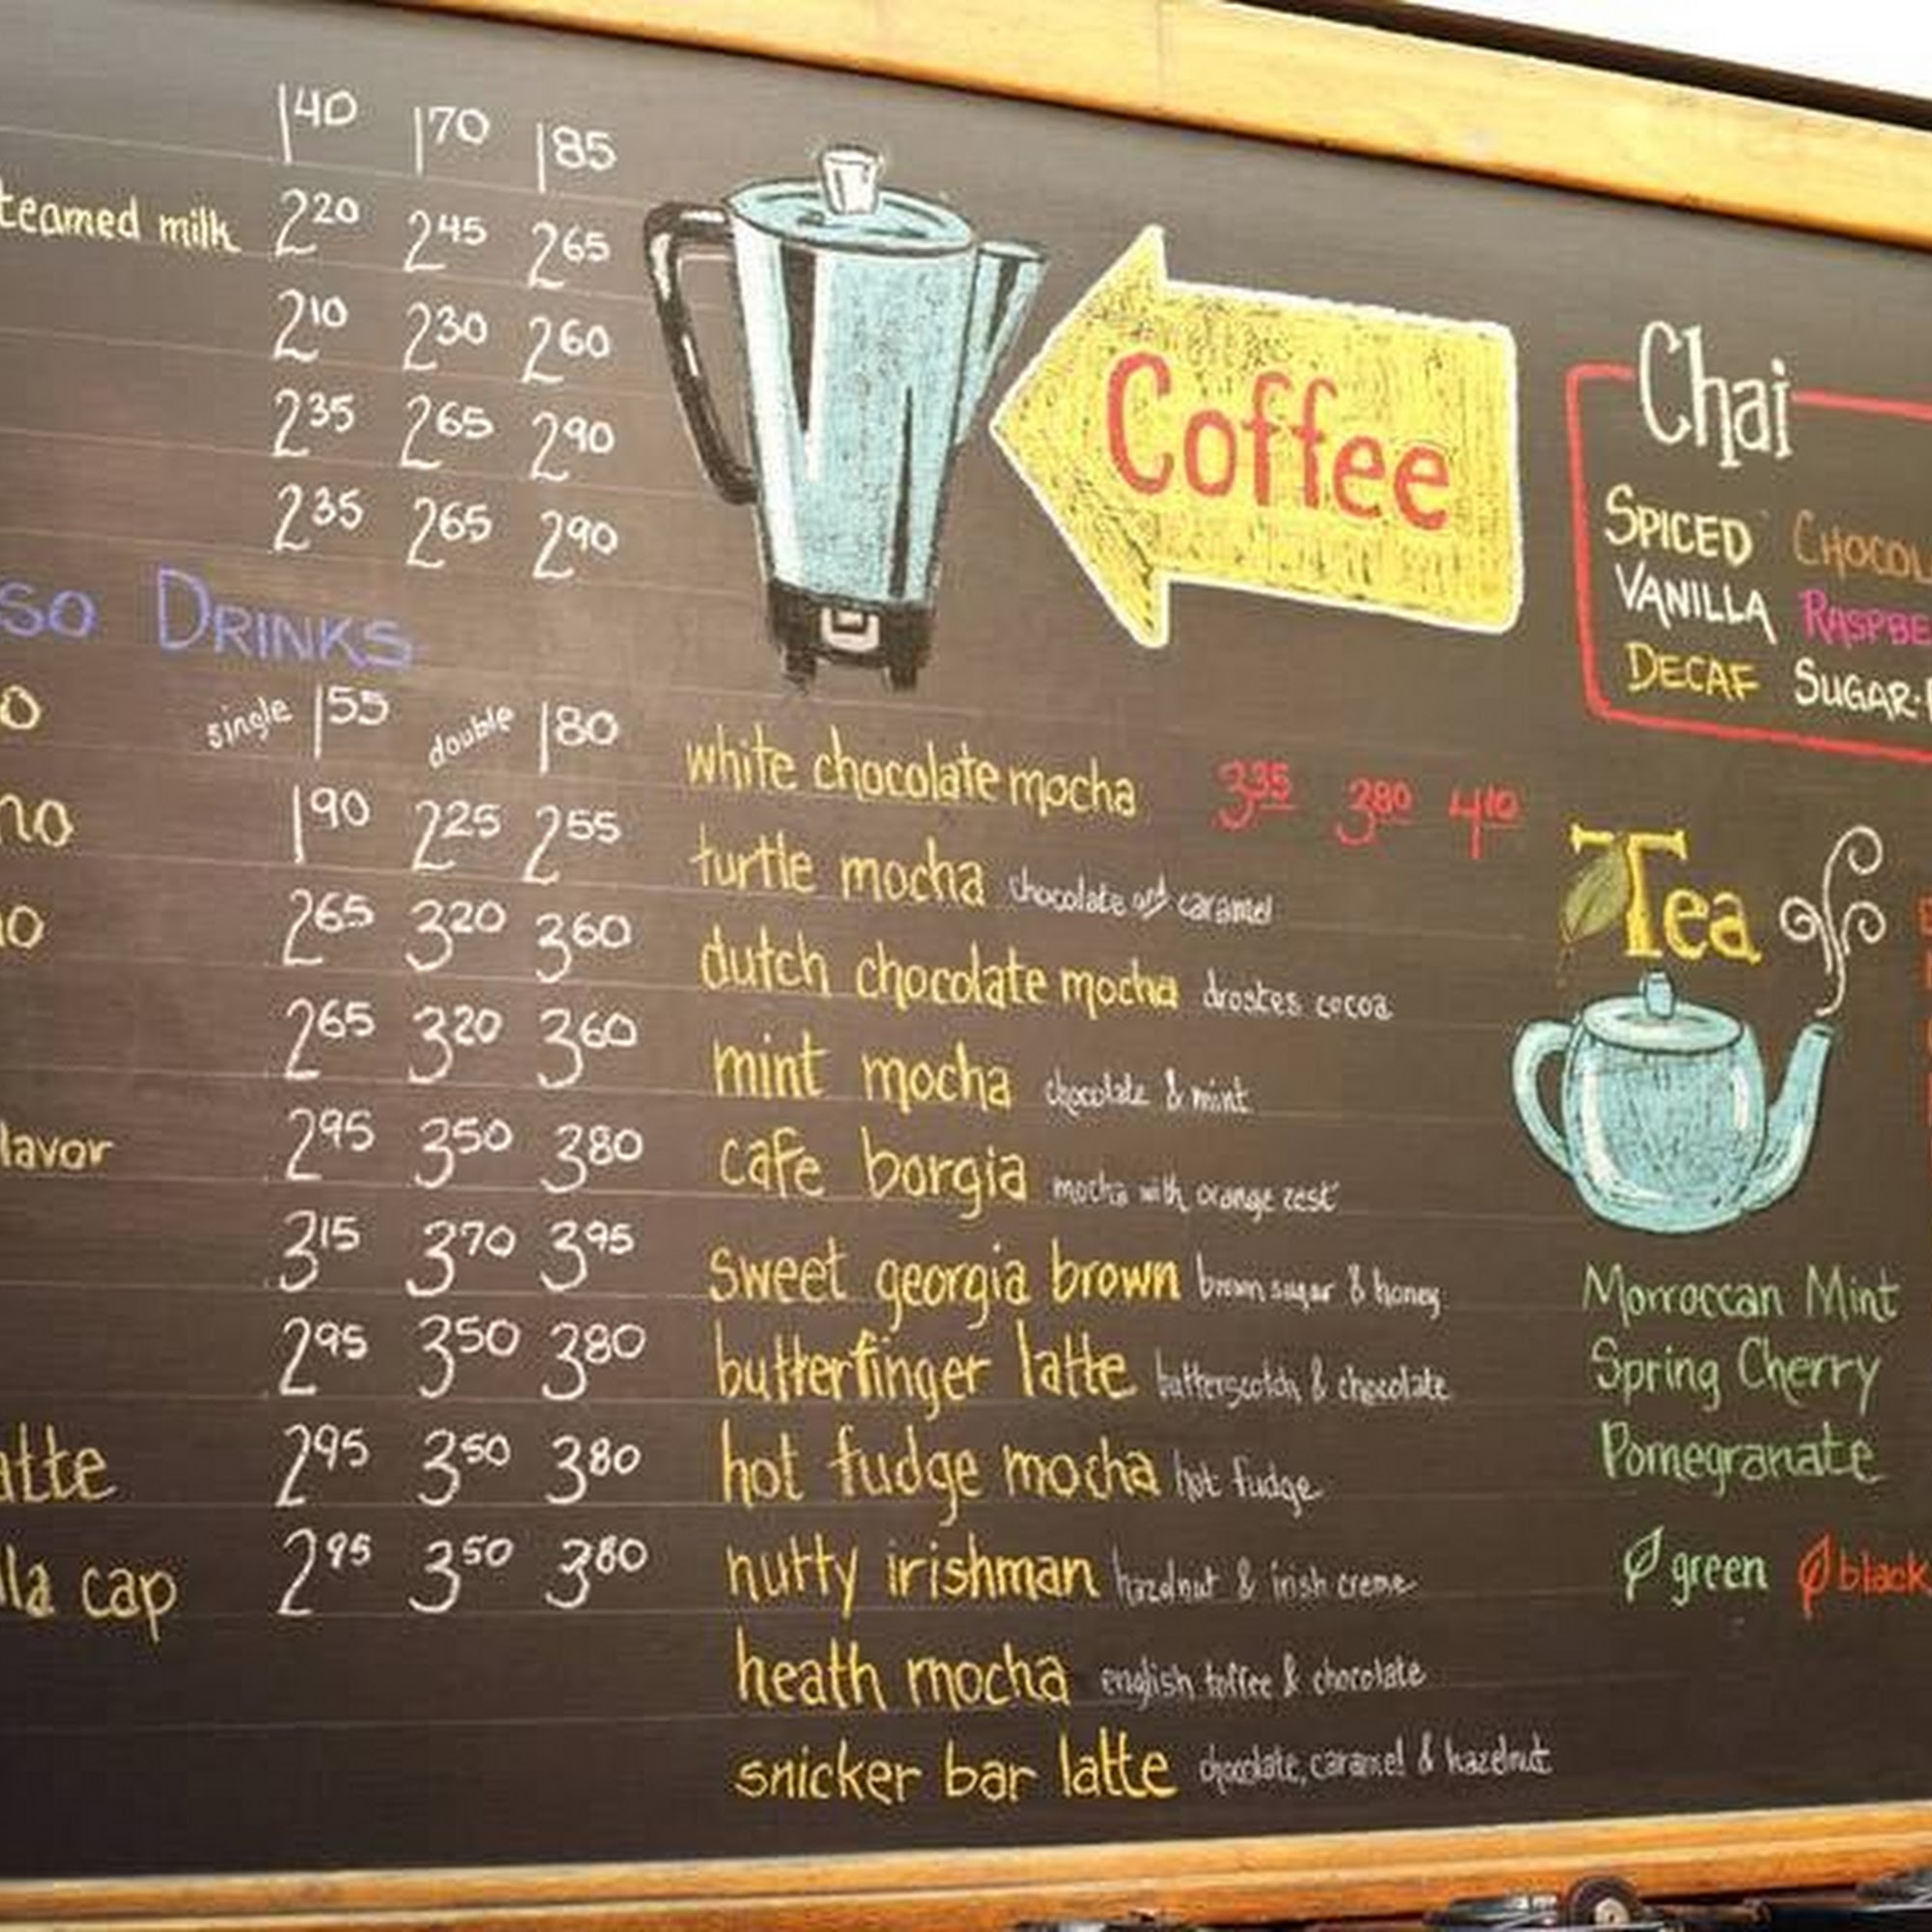 1 40 1 70 1 85
teamed milk 2 20 2 45 2 65
2 10 2 30 2 60
2 35 2 65 2 90
2 35 2 65 2 90
so DRINKS
o single 1 55 double 1 80
no 1 90 2 25 2 55
no 2 65 3 20 3 60
2 65 3 20 3 60
lavor 2 95 3 50 3 80
3 15 3 70 3 95
2 95 3 50 3 80
atte 2 95 3 50 3 80
lla cap 2 95 3 50 3 80
Coffee
white chocolate mocha 3 35 3 80 4 10
turtle mocha chocolate and caramel
dutch chocolate mocha drostes cocoa
mint mocha chocolate & mint
cafe borgia mocha with orange zest
sweet georgia brown brown sugar & honey
butterfinger latte butterscotch & chocolate
hot fudge mocha hot fudge
nutty irishman hazelnut & irish creme
heath mocha english toffee & chocolate
snicker bar latte chocolate, caramel & hazelnut
Chai
SPICED CHOCOL
VANILLA RASPBE
DECAF SUGAR-
Tea
Morroccan Mint
Spring Cherry
Pomegranate
green black